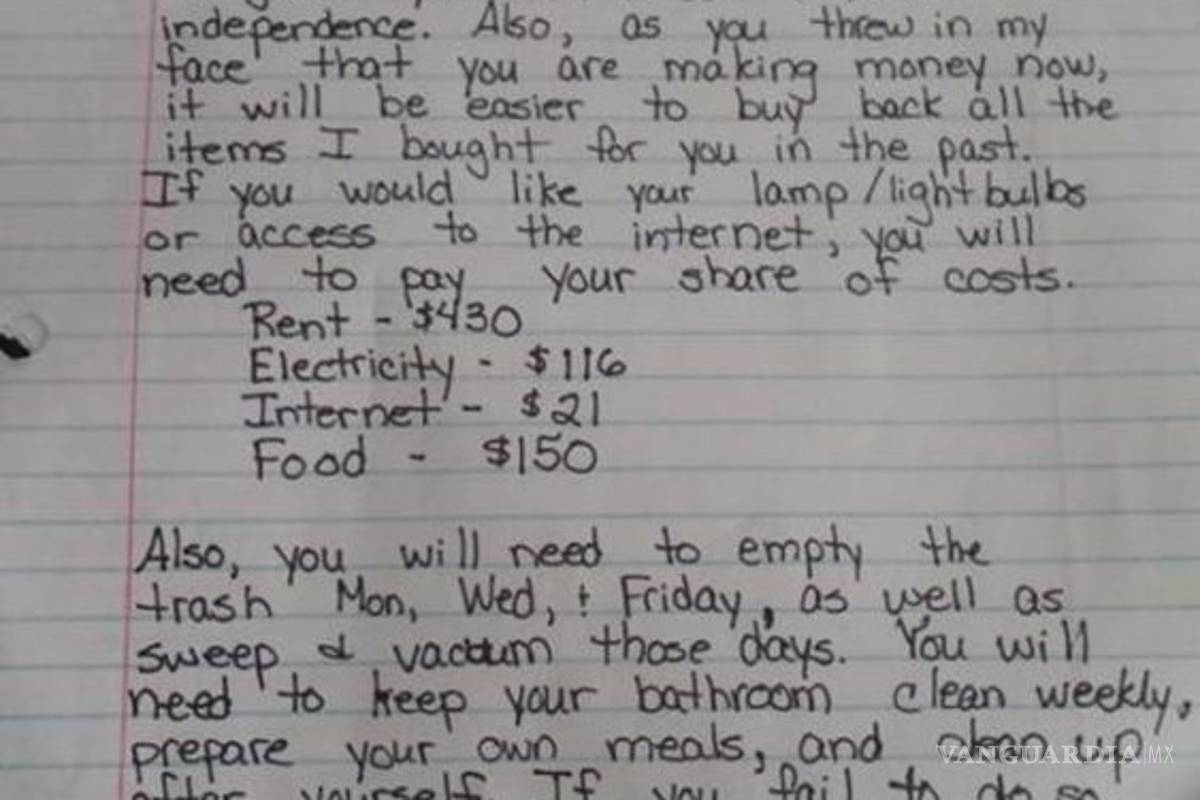 independence. Also, as you threw in my
face that you are making money now,
it will be easier to buy back all the
items I bought for you in the past.
If you would like your lamp/lightbulbs
or access to the internet, you will
need to pay your share of costs.
Rent - $430
Electricity - $116
Internet - $21
Food - $150
Also, you will need to empty the
trash Mon, Wed, & Friday, as well as
sweep & vacuum those days. You will
need to keep your bathroom clean weekly,
prepare your own meals, and clean up
after yourself. If you fail to do so
VANGUARDIA MX